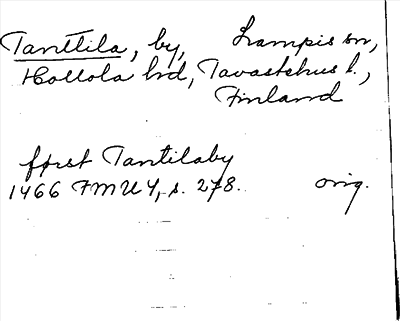 Tanttila, by, Lampis sn,
Hollola hd, Tavastehus l.,
Finland
först Tantilaby
1466 FMU 4, s. 278. orig.